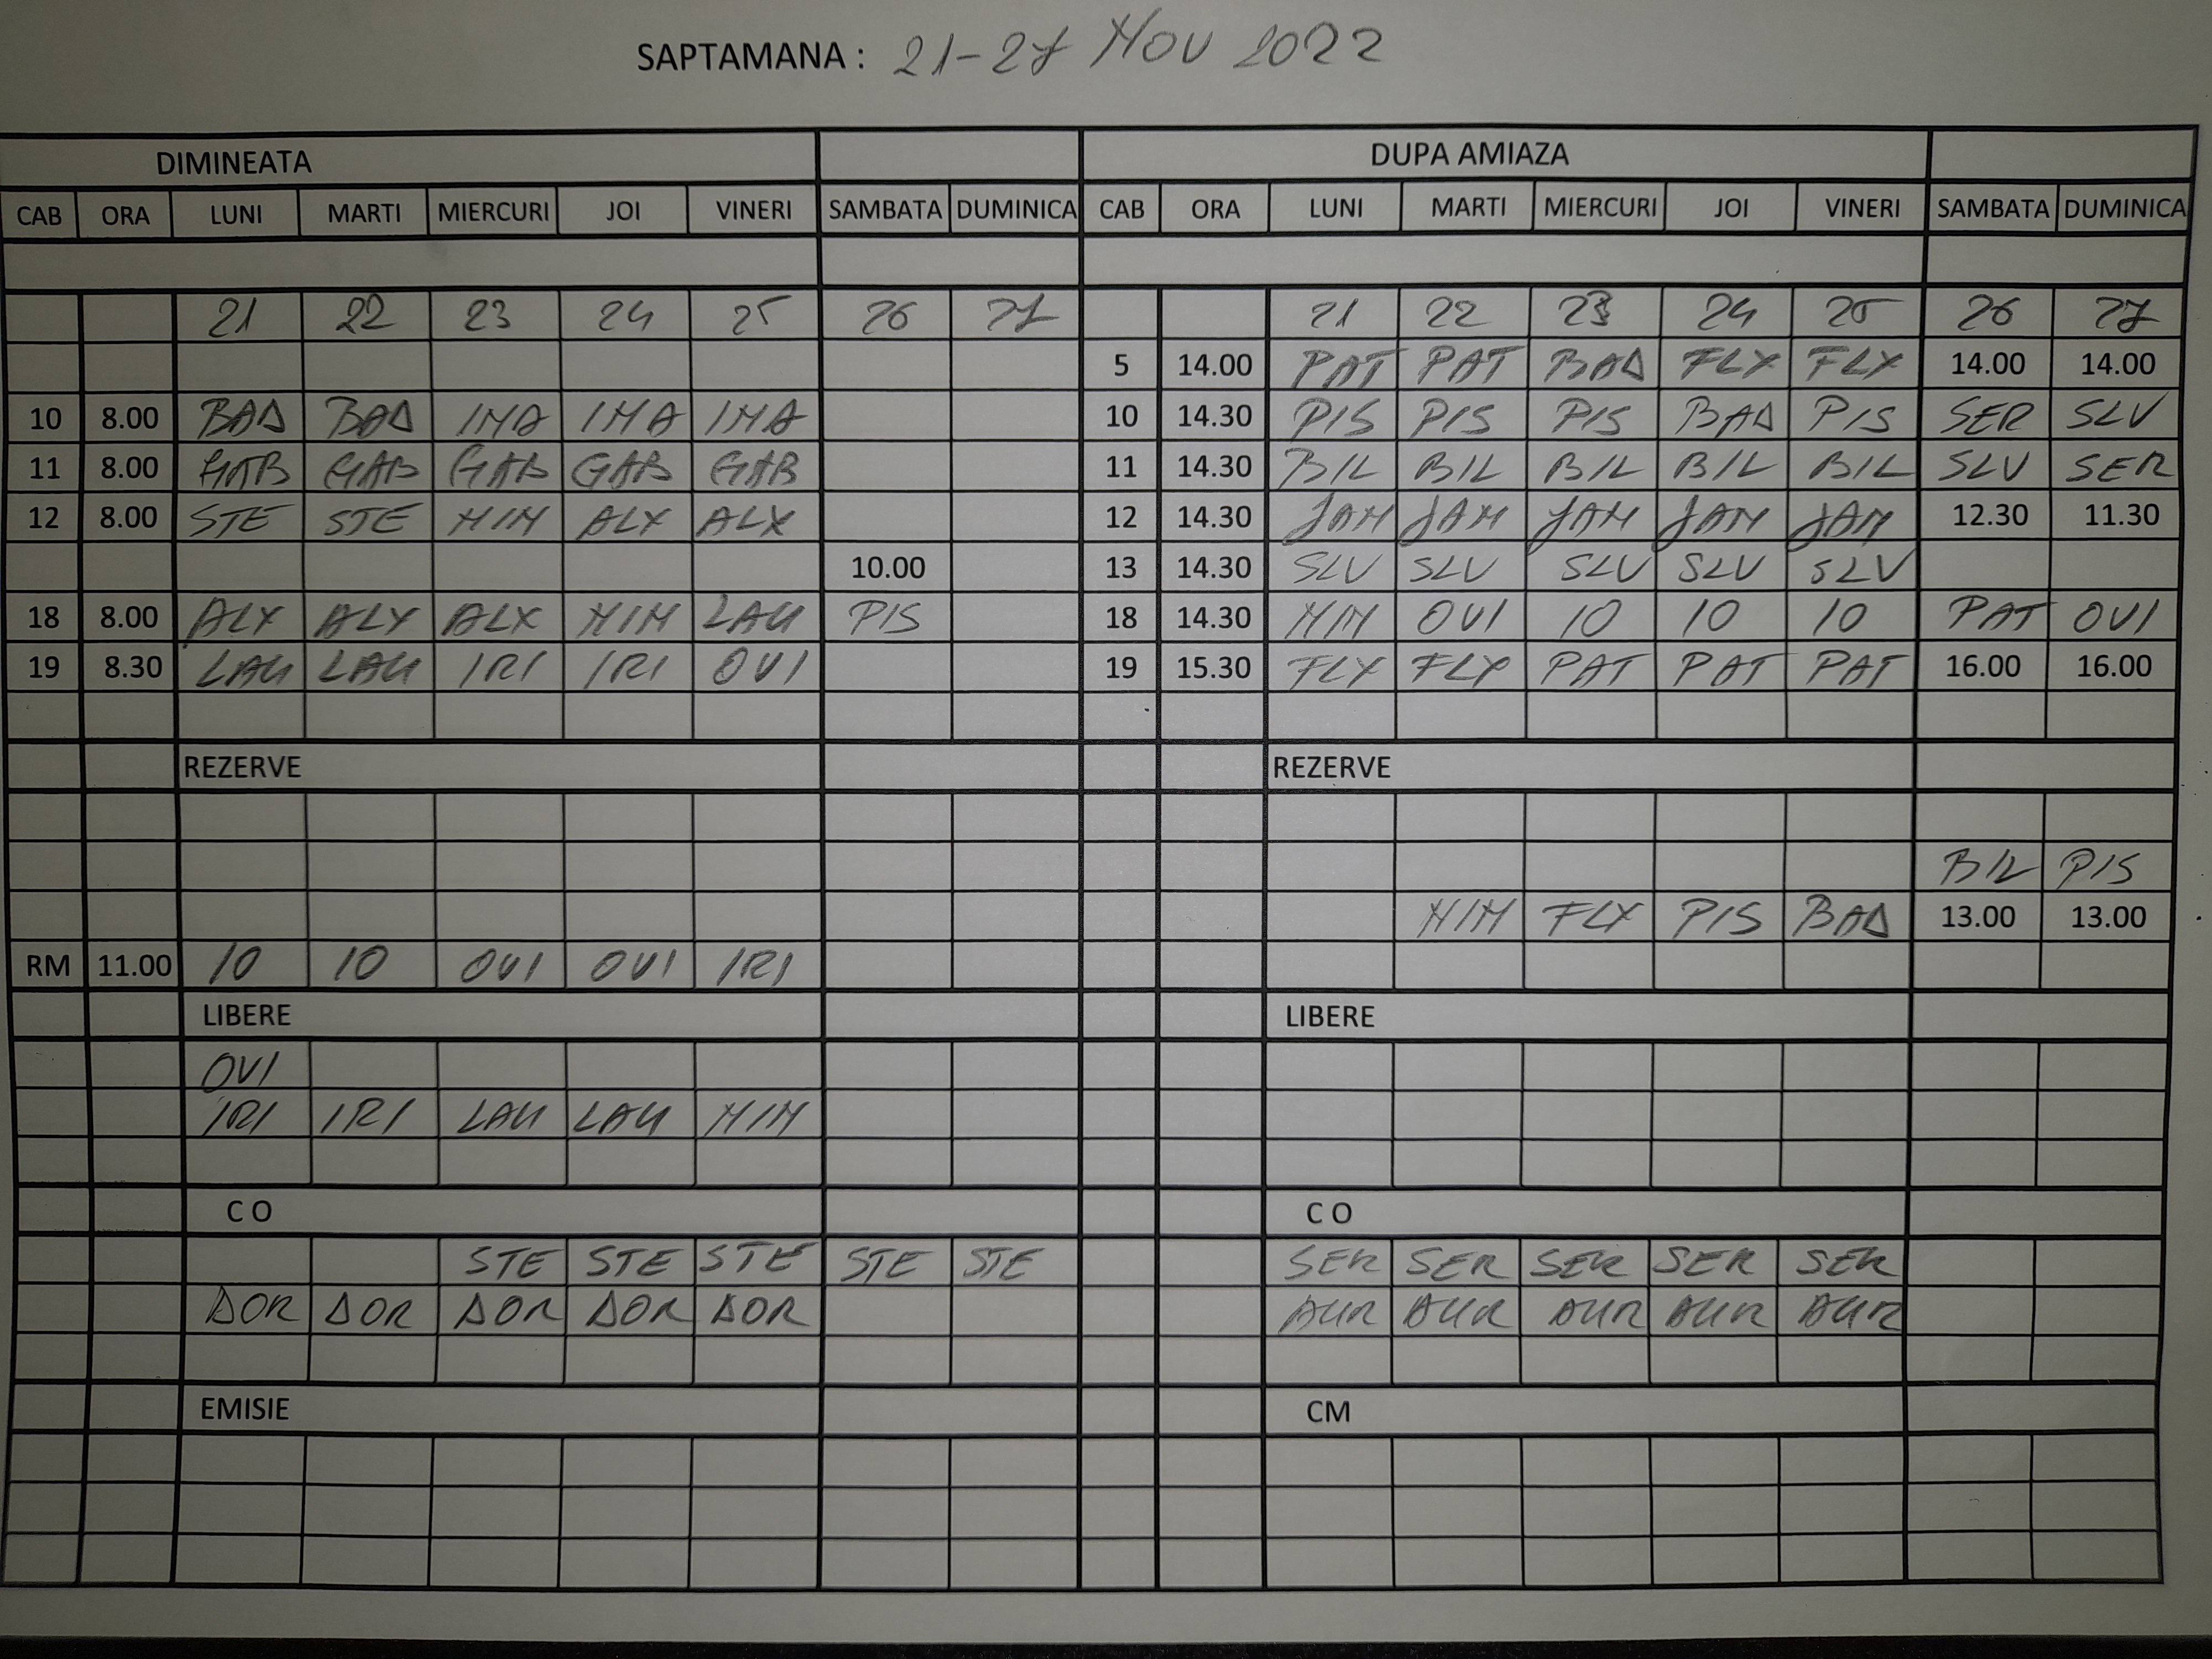 SAPTAMANA : 21-27 NOV 2022
DIMINEATA DUPA AMIAZA
CAB ORA LUNI MARTI MIERCURI JOI VINERI SAMBATA DUMINICA CAB ORA LUNI MARTI MIERCURI JOI VINERI SAMBATA DUMINICA
21 22 23 24 25 26 27 21 22 23 24 25 26 27
5 14.00 PAT PAT BAD FLX FLX 14.00 14.00
10 8.00 BAD BAD INA INA INA 10 14.30 PIS PIS PIS BAD PIS SER SLV
11 8.00 GAB GAB GAB GAB GAB 11 14.30 BIL BIL BIL BIL BIL SLV SER
12 8.00 STE STE MIM ALX ALX 12 14.30 JAM JAM JAM JAM JAM 12.30 11.30
10.00 13 14.30 SLV SLV SLV SLV SLV
18 8.00 ALX ALX ALX MIM LAU PIS 18 14.30 MIM OVI IO IO IO PAT OVI
19 8.30 LAU LAU IRI IRI OVI 19 15.30 FLX FLX PAT PAT PAT 16.00 16.00
REZERVE REZERVE
BIL PIS
MIM FLX PIS BAD 13.00 13.00
RM 11.00 IO IO OVI OVI IRI
LIBERE LIBERE
OVI
IRI IRI LAU LAU MIM
C O C O
STE STE STE STE STE SER SER SER SER SER
DOR DOR DOR DOR DOR AUR AUR AUR AUR AUR
EMISIE CM